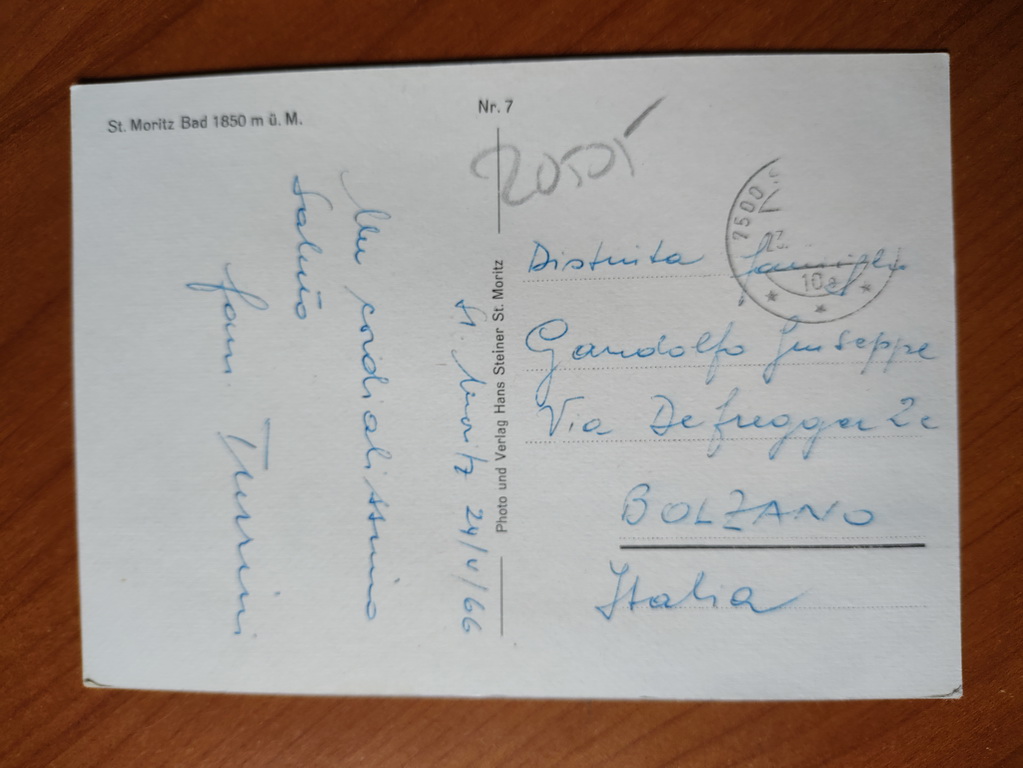 St. Moritz Bad 1850 m ü. M.
Nr. 7
St. Moritz 24/V/66
Un cordialissimo
Saluto
fam. Turrini
Photo und Verlag Hans Steiner St. Moritz
7500
10
Distinta famiglia
Gandolfo Giuseppe
Via Defregger 2c
BOLZANO
Italia